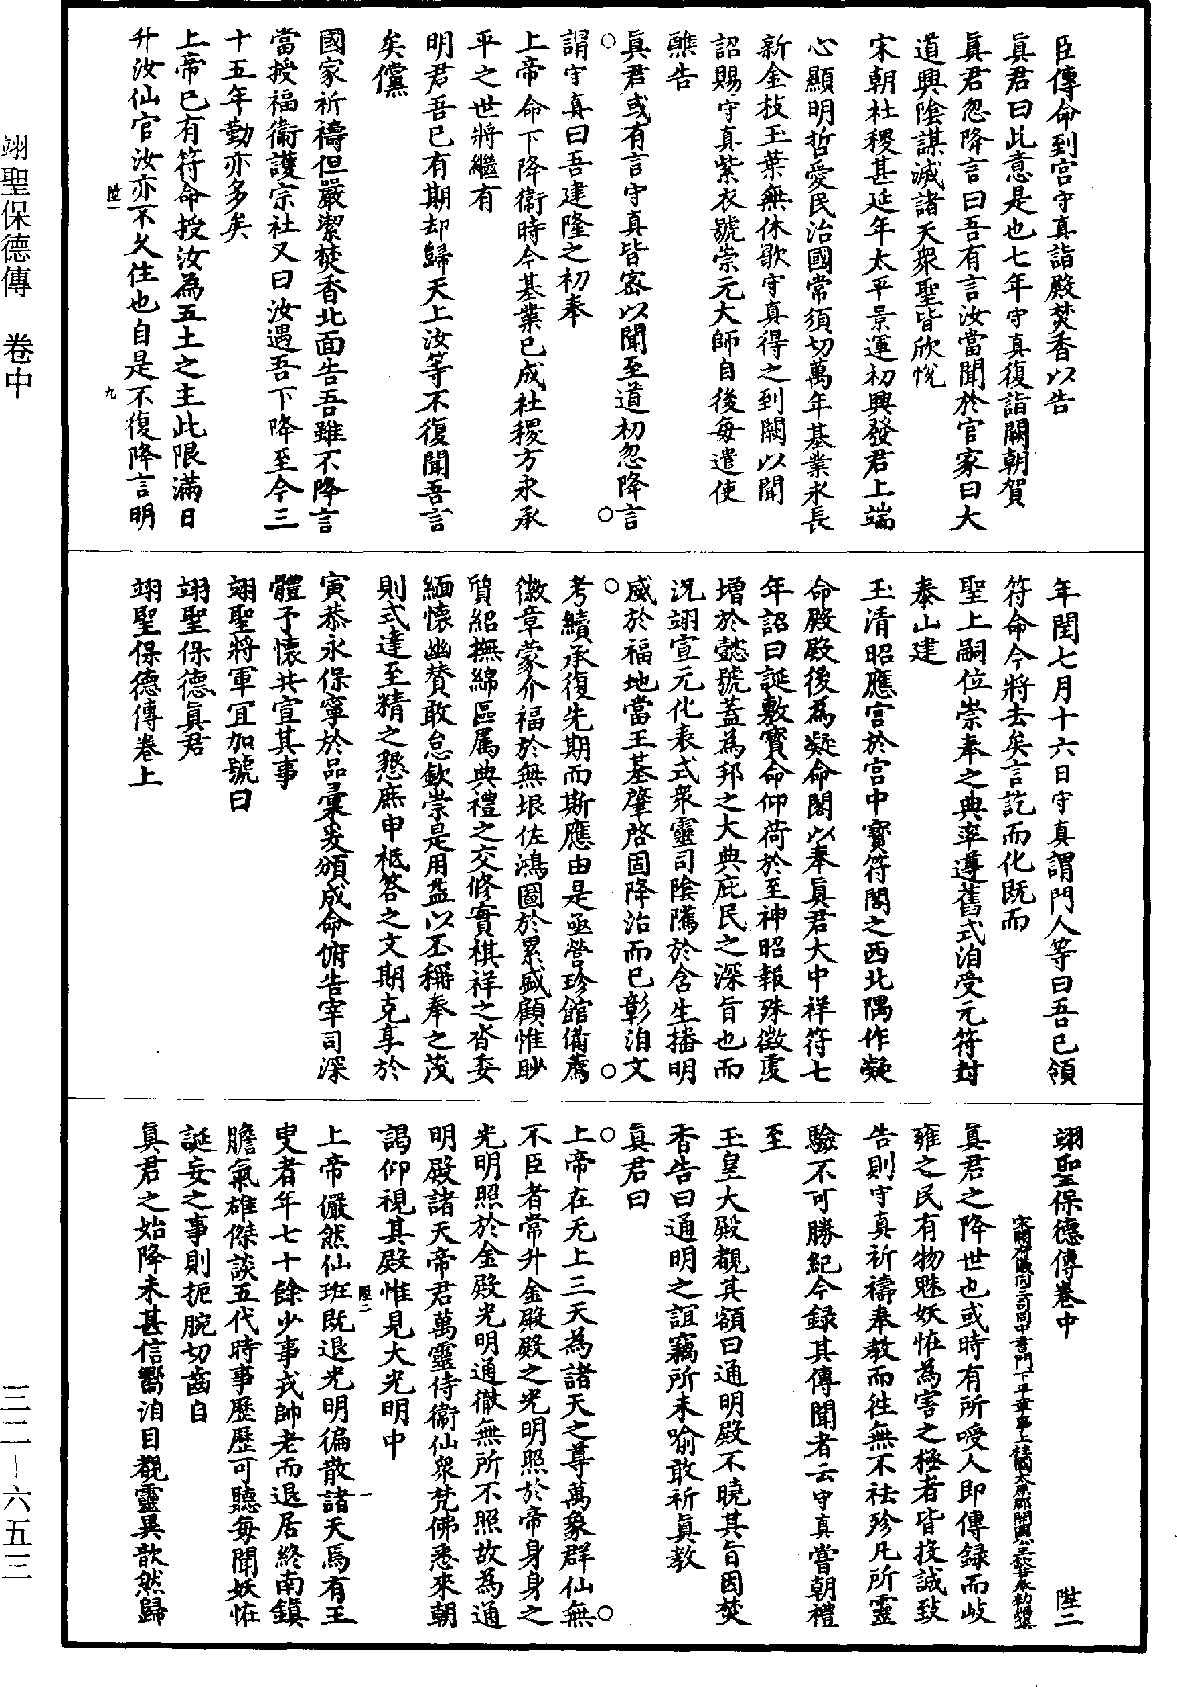 臣傳命到宮守真詣殿焚香以告
真君曰此意是也七年守真復詣闕朝賀
真君忽降言曰吾有言汝當聞於官家曰大
道興陰謀滅諸天眾聖皆欣悅
宋朝社稷甚延年太平景運初興發君上端
心顯明哲愛民治國常須切萬年基業永長
新金枝玉葉無休歇守真得之到闕以聞
詔賜守真紫衣號崇元大師自後每遣使
醮告
真君或有言守真皆密以聞至道初忽降言
謂守真曰吾建隆之初奉
上帝命下降衛時今基業已成社稷方永承
平之世將繼有
明君吾已有期却歸天上汝等不復聞吾言
矣儻
國家祈禱但嚴潔焚香北面告吾雖不降言
當授福衛護宗社又曰汝遇吾下降至今三
十五年勤亦多矣
上帝已有符命授汝為五土之主此限滿日
升汝仙官汝亦不久住也自是不復降言明
陞一
九
年閏七月十六日守真謂門人等曰吾已領
符命今將去矣言訖而化既而
聖上嗣位崇奉之典率遵舊式洎受元符封
奉山建
玉清昭應宮於宮中寳符閣之西北隅作凝
命殿殿後為凝命閣以奉真君大中祥符七
年詔曰誕敷寳命仰荷於至神昭報殊徵虔
增於懿號蓋為邦之大典庇民之深旨也而
況翊宣元化表式眾靈司陰隲於含生播明
威於福地當王基肇啓固降治而已彰洎文
考纘承復先期而斯應由是亟營珍館備薦
徽章蒙介福於無垠佐鴻圖於累盛顧惟眇
質紹撫綿區属典禮之交修實祺祥之沓委
緬懷幽賛敢怠欽崇是用益以丕稱奉之茂
則式達至精之懇庶申祗答之文期克享於
寅恭永保寧於品彙爰頒成命俯告宰司深
體予懷共宣其事
翊聖將軍冝加號曰
翊聖保德真君
翊聖保德傳卷上
翊聖保德傳卷中　陞二
真君之降世也或時有所噯人即傳録而岐
雍之民有物魅妖恠為害之極者皆投誠致
告則守真祈禱奉教而往無不祛殄凡所靈
驗不可勝紀今録其傳聞者云守真嘗朝禮
至
玉皇大殿覩其額曰通明殿不曉其旨因焚
香告曰通明之誼竊所未喻敢祈真教
真君曰
上帝在无上三天為諸天之尊萬象群仙無
不臣者常升金殿殿之光明照於帝身身之
光明照於金殿光明通徹無所不照故為通
明殿諸天帝君萬靈侍衛仙眾梵佛悉來朝
謁仰視其殿惟見大光明中
上帝儼然仙班既退光明徧散諸天焉有王
叟者年七十餘少事戎帥老而退居終南鎮
膽氣雄傑談五代時事歷歷可聽每聞妖恠
誕妄之事則扼腕切齒自
真君之始降未甚信嚮洎目覩靈異歆然歸
陞二
一
翊聖保德傳　卷中
三二—六五三